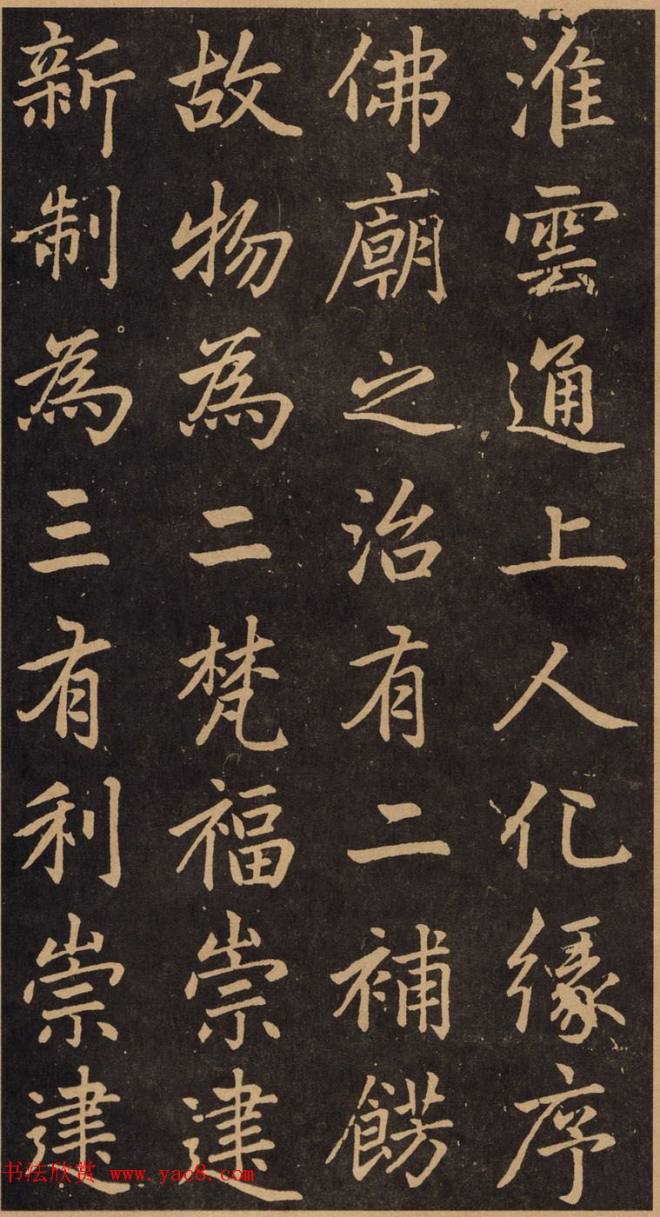 淮雲通上人化緣序
佛廟之治有二補
故物為二梵福崇建
新制為三有利崇建
书法欣赏 www.yac8.com